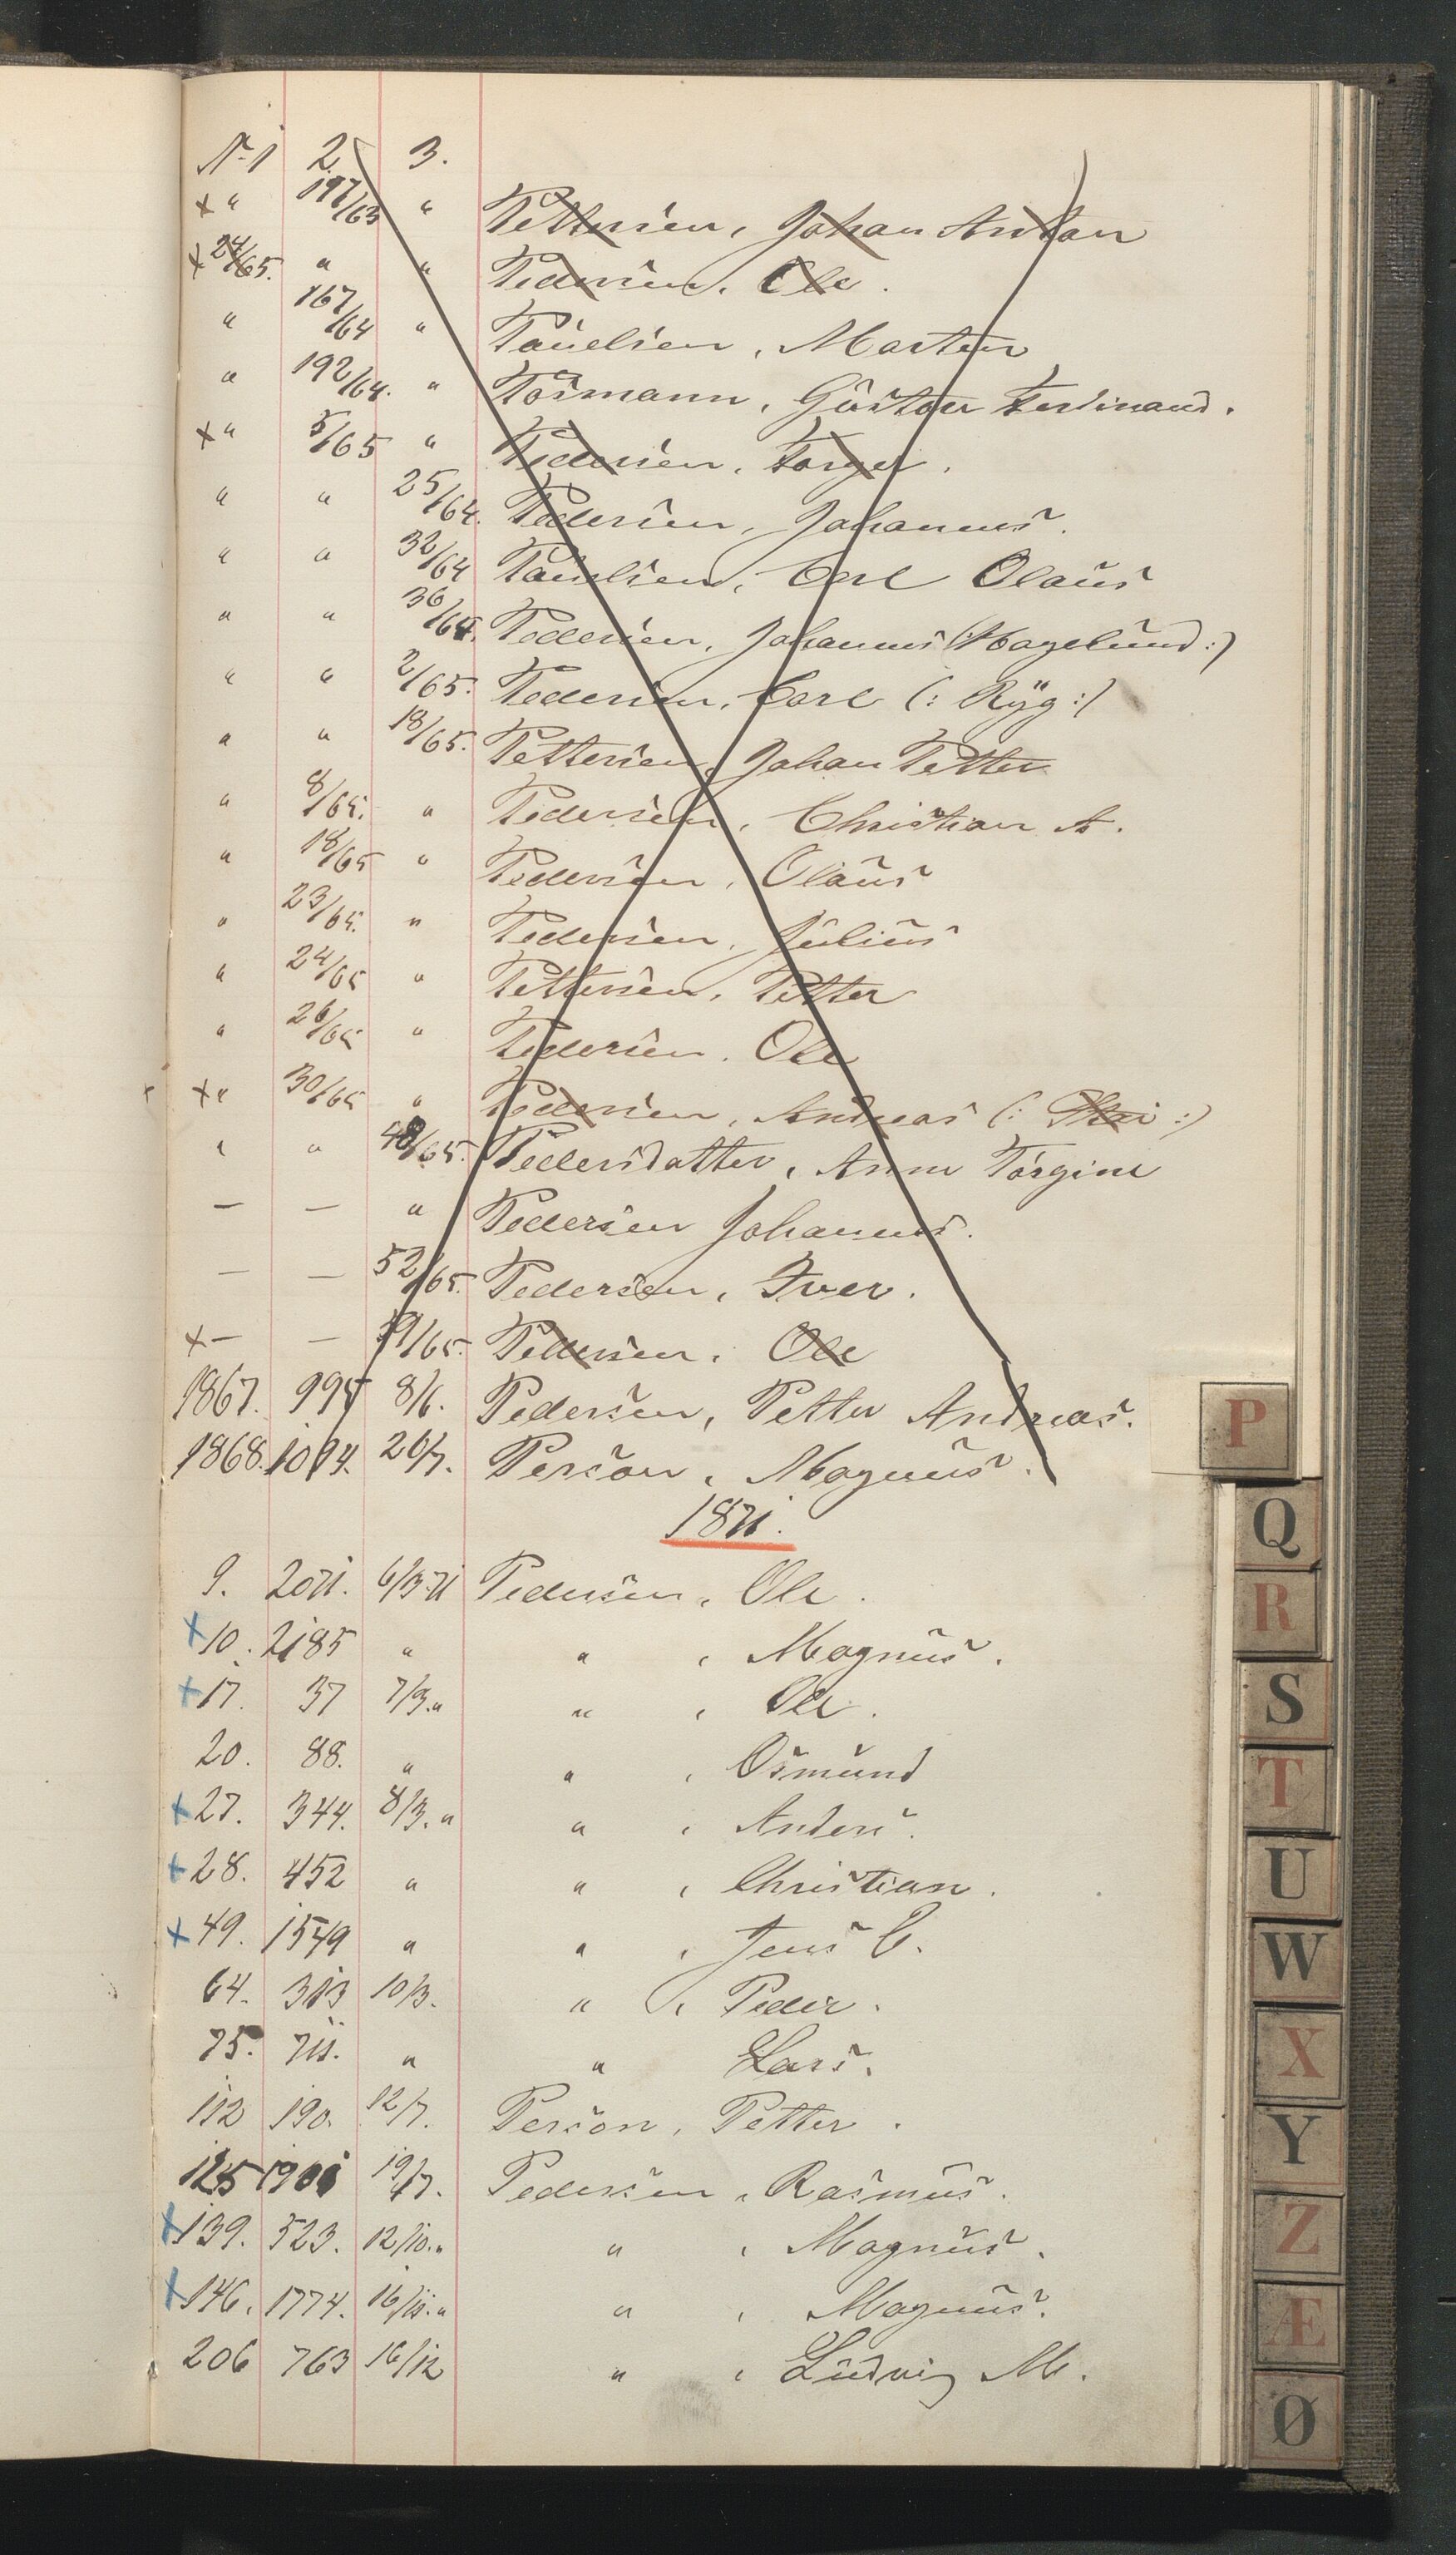 No 1 2. 3.
× " 197/63 " Pettersen, Johan Anton
× 24/65. " " Pedersen, Ole.
" 167/64 " Pauelsen, Marten
" 192/64. " Posmann, Gustav Ferdinand.
× " 5/65 " Pedersen, Torger.
" " 25/64. Pedersen, Johannes.
" " 32/64 Pauelsen, Carl Olaus
" " 36/64. Pedersen, Johannes (: Hagelund :)
" " 2/65. Pedersen, Carl (: Ryg :)
" " 18/65. Pettersen, Johan Petter
" 8/65. " Pedersen, Christian A.
" 18/65 " Pedersen, Olaus
" 23/65. " Pedersen, Julius
" 24/65 " Pettersen, Petter
" 26/65 " Pedersen. Ole
× " 30/65 " Pedersen, Andreas
" " 48/65. Pedersdatter, Anne Torgine
— — " Pedersen Johannes.
— — 52/65. Pedersen, Iver.
× — — /65. Pedersen, Ole
1867. 995 8/6. Pedersen, Petter Andreas.
1868. 1094. 26/7. Person, Magnus.
1871.
9. 2071. 6/3 71 Pedersen, Ole.
× 10. 2185 " " , Magnus.
+ 17. 37 7/3. " " , Ole.
20. 88. " " , Osmund
+ 27. 344. 8/3. " " , Anders.
+ 28. 452 " " , Christian.
× 49. 1549 " " , Jens C.
64. 313 10/3. " , Peder.
75. 711. " " Lars.
112 190. 12/7. Person, Petter.
125 1901 19/7. Pedersen, Rasmus.
× 139. 523. 12/10. " " , Magnus.
× 146. 1774. 16/11. " " , Magnus.
206 763 16/12 " , Ludvig M.
P
Q
R
S
T
U
W
X
Y
Z
Æ
Ø